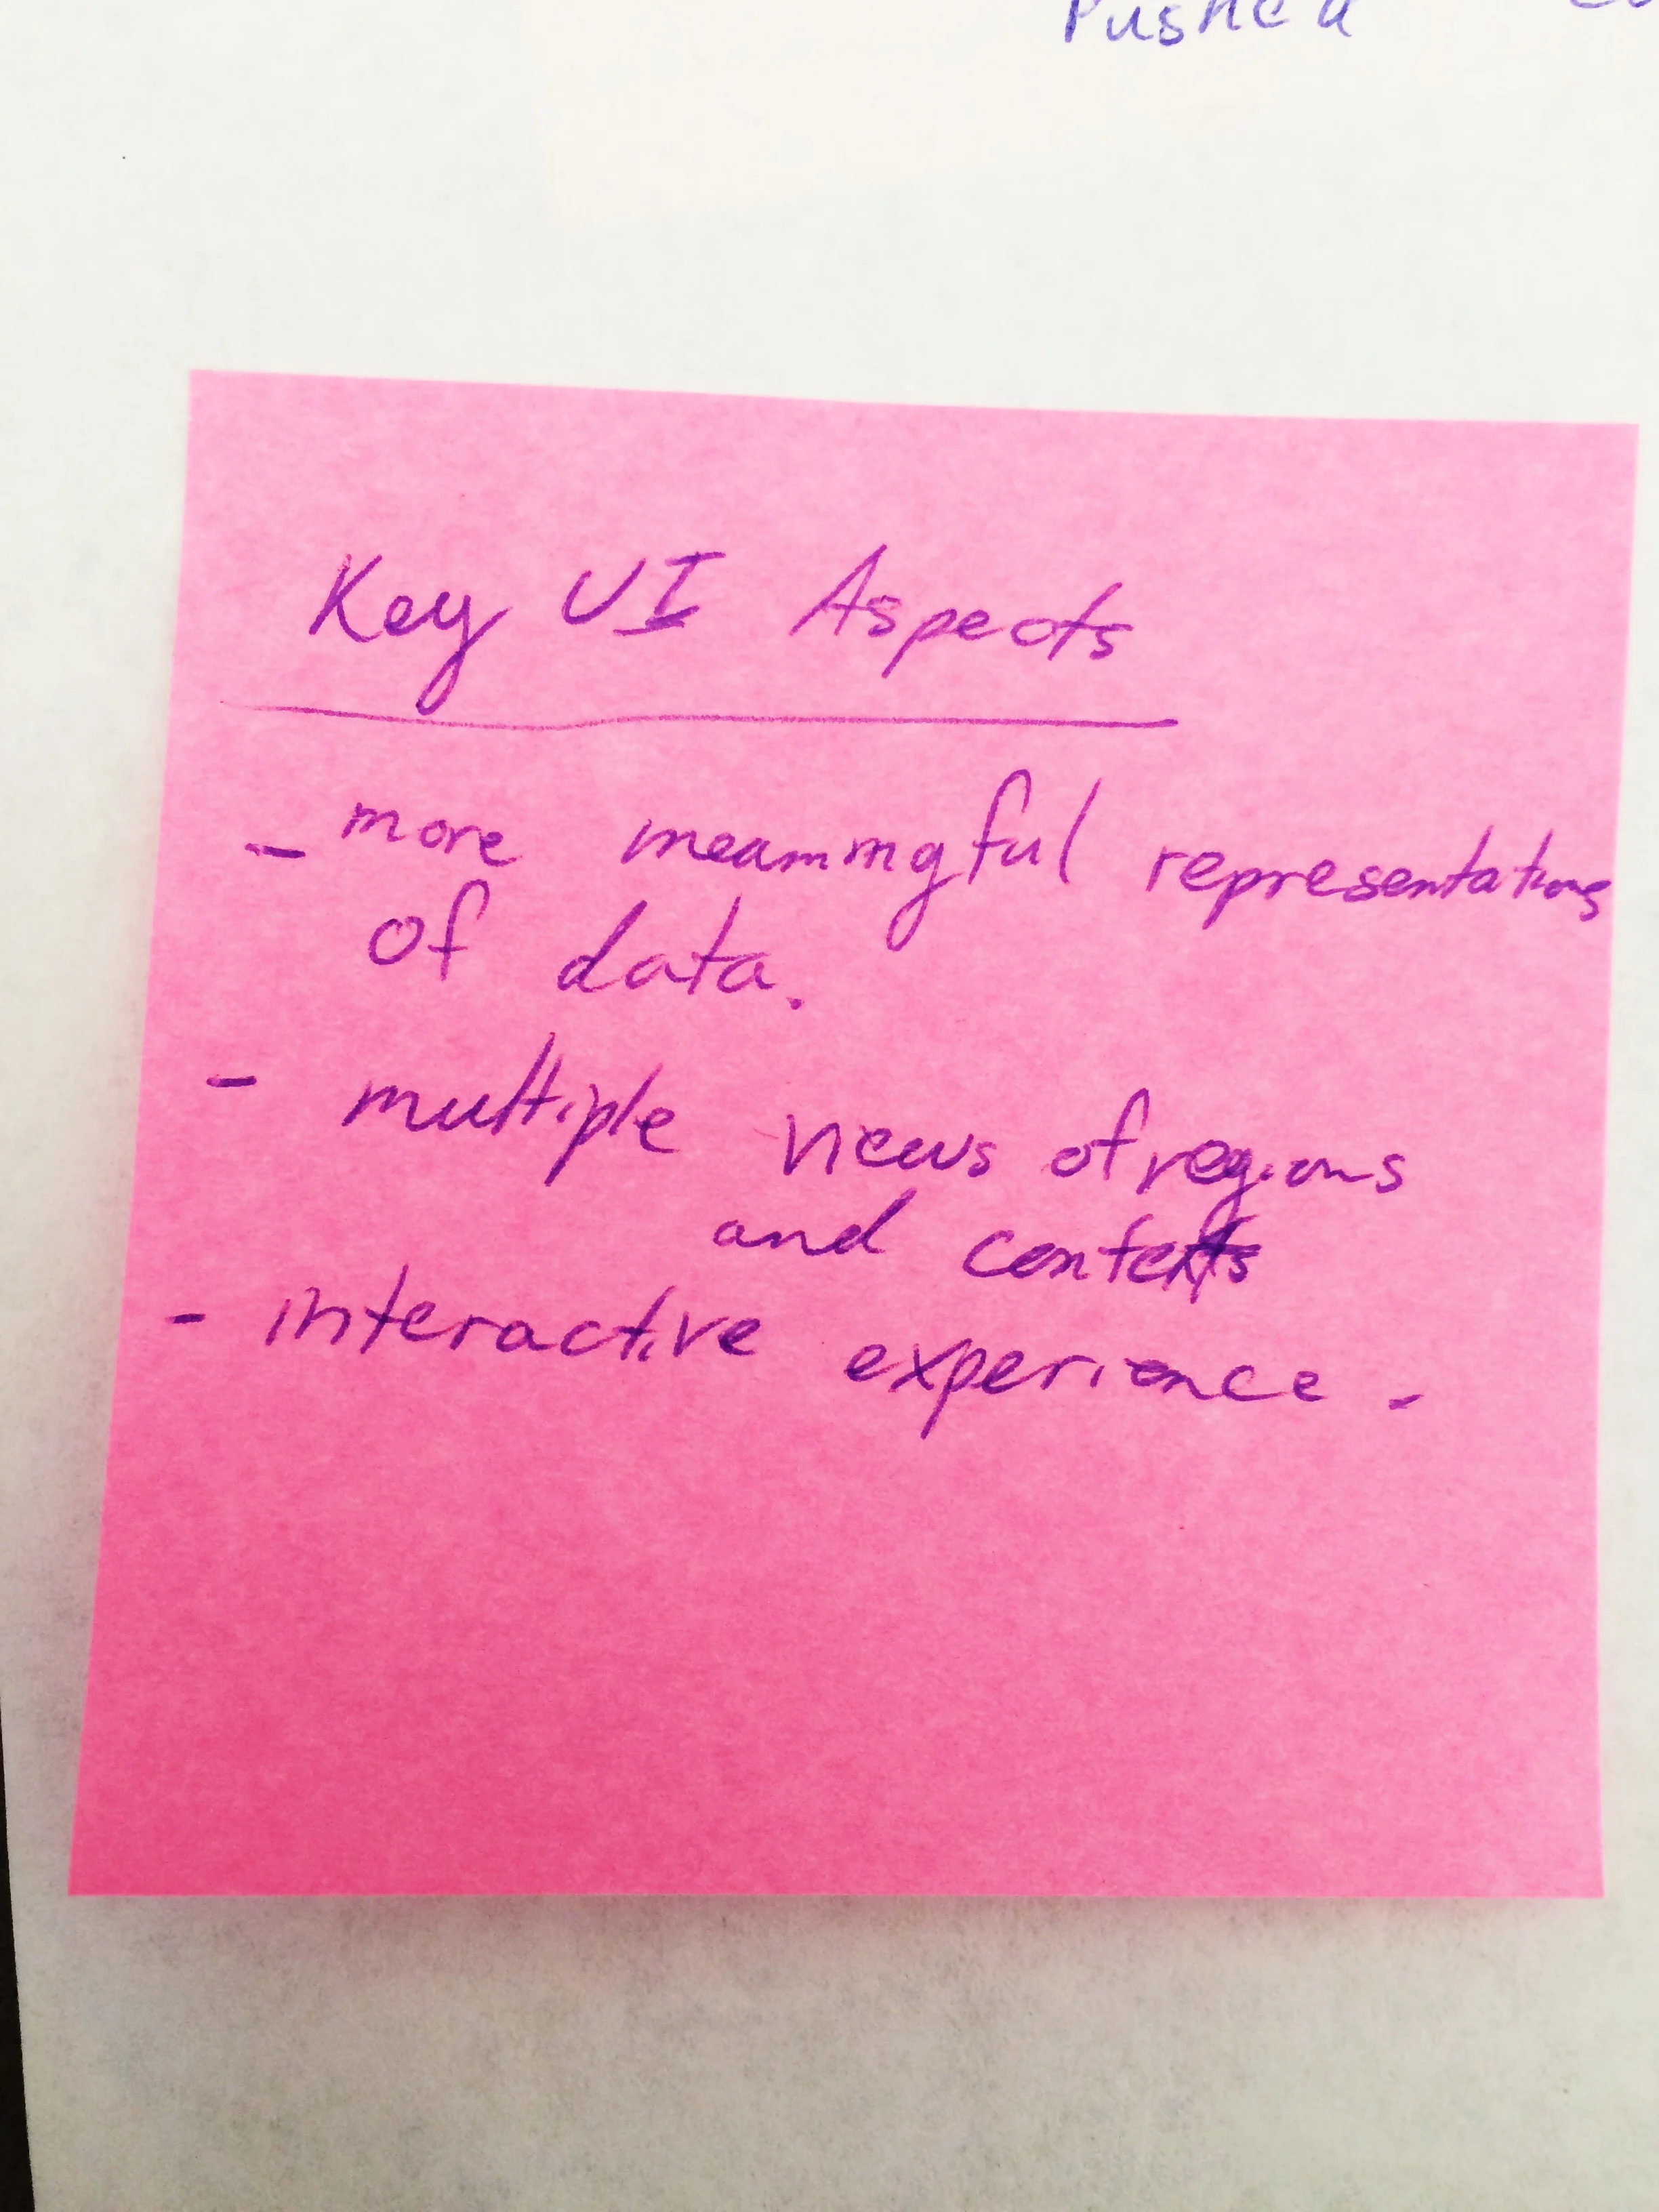 Pushed
Key UI Aspects
- more meaningful representations
of data.
- multiple views of regions
and contexts
- interactive experience.